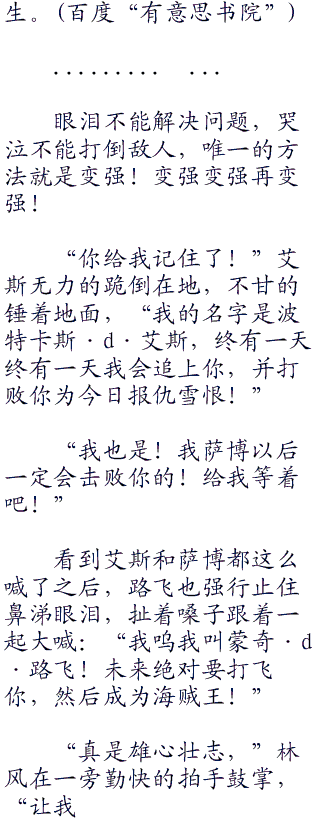 生。(百度“有意思书院”)
......... ...
眼泪不能解决问题，哭
泣不能打倒敌人，唯一的方
法就是变强！变强变强再变
强！
“你给我记住了！”艾
斯无力的跪倒在地，不甘的
锤着地面，“我的名字是波
特卡斯·d·艾斯，终有一天
终有一天我会追上你，并打
败你为今日报仇雪恨！”
“我也是！我萨博以后
一定会击败你的！给我等着
吧！”
看到艾斯和萨博都这么
喊了之后，路飞也强行止住
鼻涕眼泪，扯着嗓子跟着一
起大喊：“我呜我叫蒙奇·d
·路飞！未来绝对要打飞
你，然后成为海贼王！”
“真是雄心壮志，”林
风在一旁勤快的拍手鼓掌，
“让我